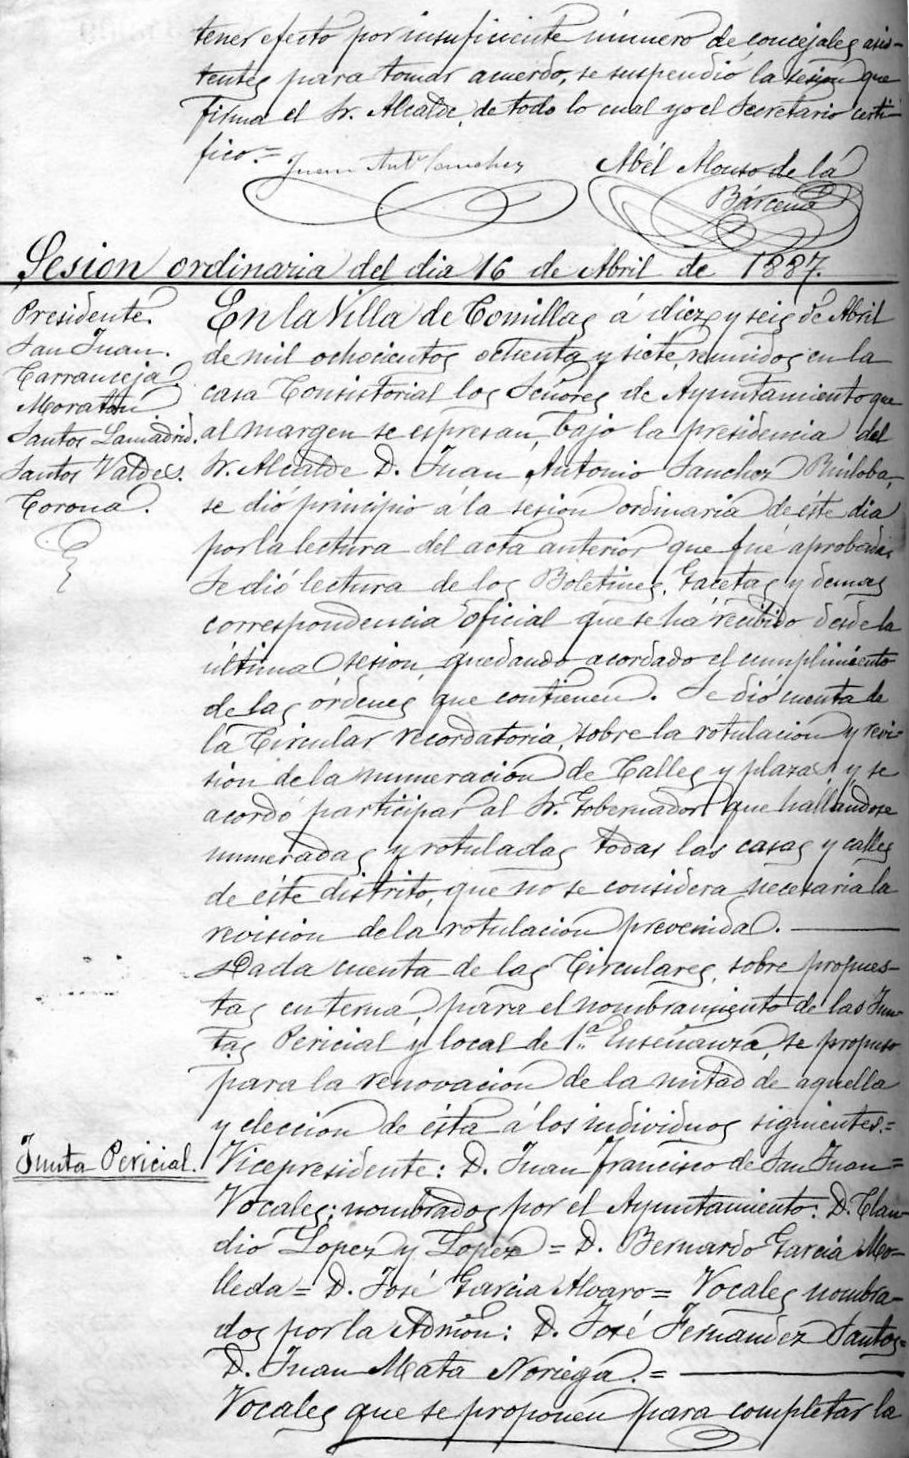 tener efecto por insuficiente número de concejales asis-
tentes para tomar acuerdo, se suspendió la sesion que
firma el Sr. Alcalde, de todo lo cual yo el Secretario certi-
fico.=
Juan Antº Sanchez
Abél Alonso de la
Bárcena
Sesion ordinaria del dia 16 de Abril de 1887.
Presidente.
San Juan.
Carranceja
Moratón
Santos Lamadrid.
Santos Valdes.
Corona.
En la Villa de Comillas á diez y seis de Abril
de mil ochocientos ochenta y siete, reunidos en la
casa Consistorial los Señores de Ayuntamiento que
al margen se espresan, bajo la presidencia del
Sr. Alcalde D. Juan Antonio Sanchez Ruiloba,
se dió principio á la sesion ordinaria de éste dia
por la lectura del acta anterior que fue aprobada
Se dió lectura de los Boletines, Gacetas y demas
correspondencia oficial que se há recibido desde la
última sesion, quedando acordado el cumplimiento
de las órdenes que contienen. Se dió cuenta de
la Circular recordatoria, sobre la rotulacion y revi-
sion de la numeracion de Calles y plazas y se
acordó participar al Sr. Gobernador que hallándose
numeradas y rotuladas todas las casas y calles
de éste distrito, que no se considera necesaria la
revision de la rotulacion prevenida.
Dada cuenta de las Circulares, sobre propues-
tas en terna, para el nombramiento de las Jun-
tas Pericial y local de 1.ª Enseñanza, se propuso
para la renovacion de la mitad de aquella
y eleccion de ésta á los individuos siguientes.=
Junta Pericial.
Vicepresidente: D. Juan Francisco de San Juan=
Vocales: nombrados por el Ayuntamiento: D. Clau-
dio Lopez y Lopez = D. Bernardo Garcia Mo-
lleda = D. José Garcia Alvaro = Vocales nombra-
dos por la Admon: D. José Fernandez Santos=
D. Juan Mata Noriega.=
Vocales que se proponen para completar la